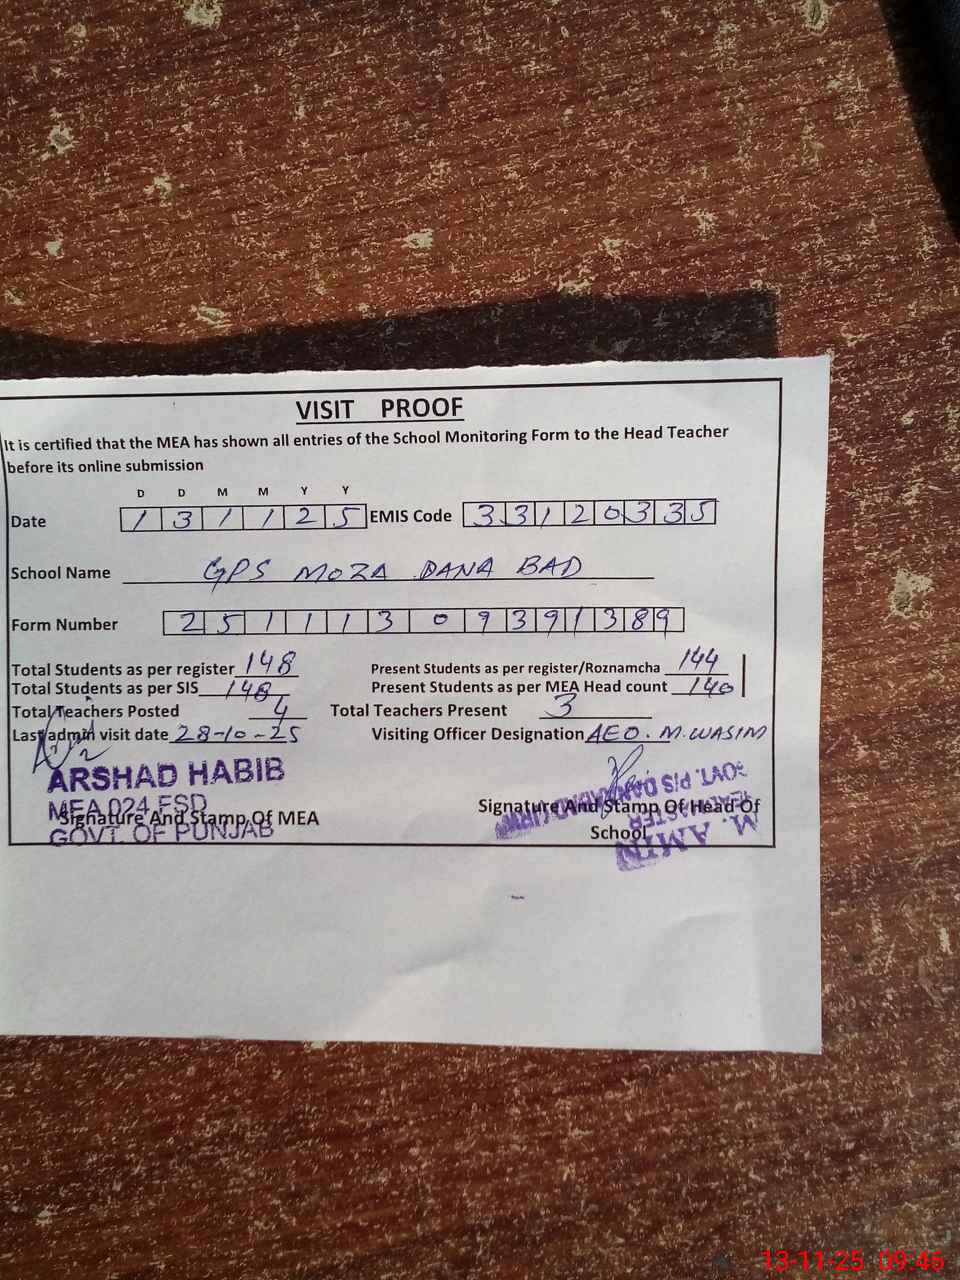 VISIT PROOF
It is certified that the MEA has shown all entries of the School Monitoring Form to the Head Teacher
before its online submission
D D M M Y Y
Date 1 3 1 1 2 5 EMIS Code 3 3 1 2 0 3 3 5
School Name GPS MOZA DANA BAD
Form Number 2 5 1 1 1 3 0 9 3 9 1 3 8 9
Total Students as per register 148 Present Students as per register/Roznamcha 144
Total Students as per SIS 148 Present Students as per MEA Head count 140
Total Teachers Posted 4 Total Teachers Present 3
Last admin visit date 28-10-25 Visiting Officer Designation AEO. M. WASIM
ARSHAD HABIB
MEA 024 FSD
GOVT. OF PUNJAB
Signature And Stamp Of MEA
Signature And Stamp Of Head Of
School
M. AMIN
HEADMASTER
GOVT. P/S
13-11-25 09:46